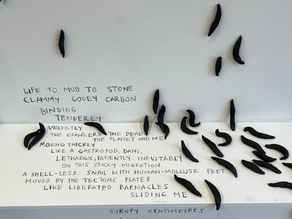 LIFE TO MUD TO STONE
CLAMMY GOOEY CARBON
BINDING
TENDERLY
VELVETLY
THE CRAWLERS THE DEAD
THE PLANET AND ME
MOVING THICKLY
LIKE A GASTROPOD, BANI,
LETHARGIC, PATIENTLY, INEVITABLY
ON THIS STICKY MIGRATION
A SHELL-LESS SNAIL WITH HUMAN-MOLLUSK FEET
MOVED BY THE TECTONIC PLATES
LIKE LIBERATED BARNACLES
SLIDING ME
SYRUPY CENTIMETRES